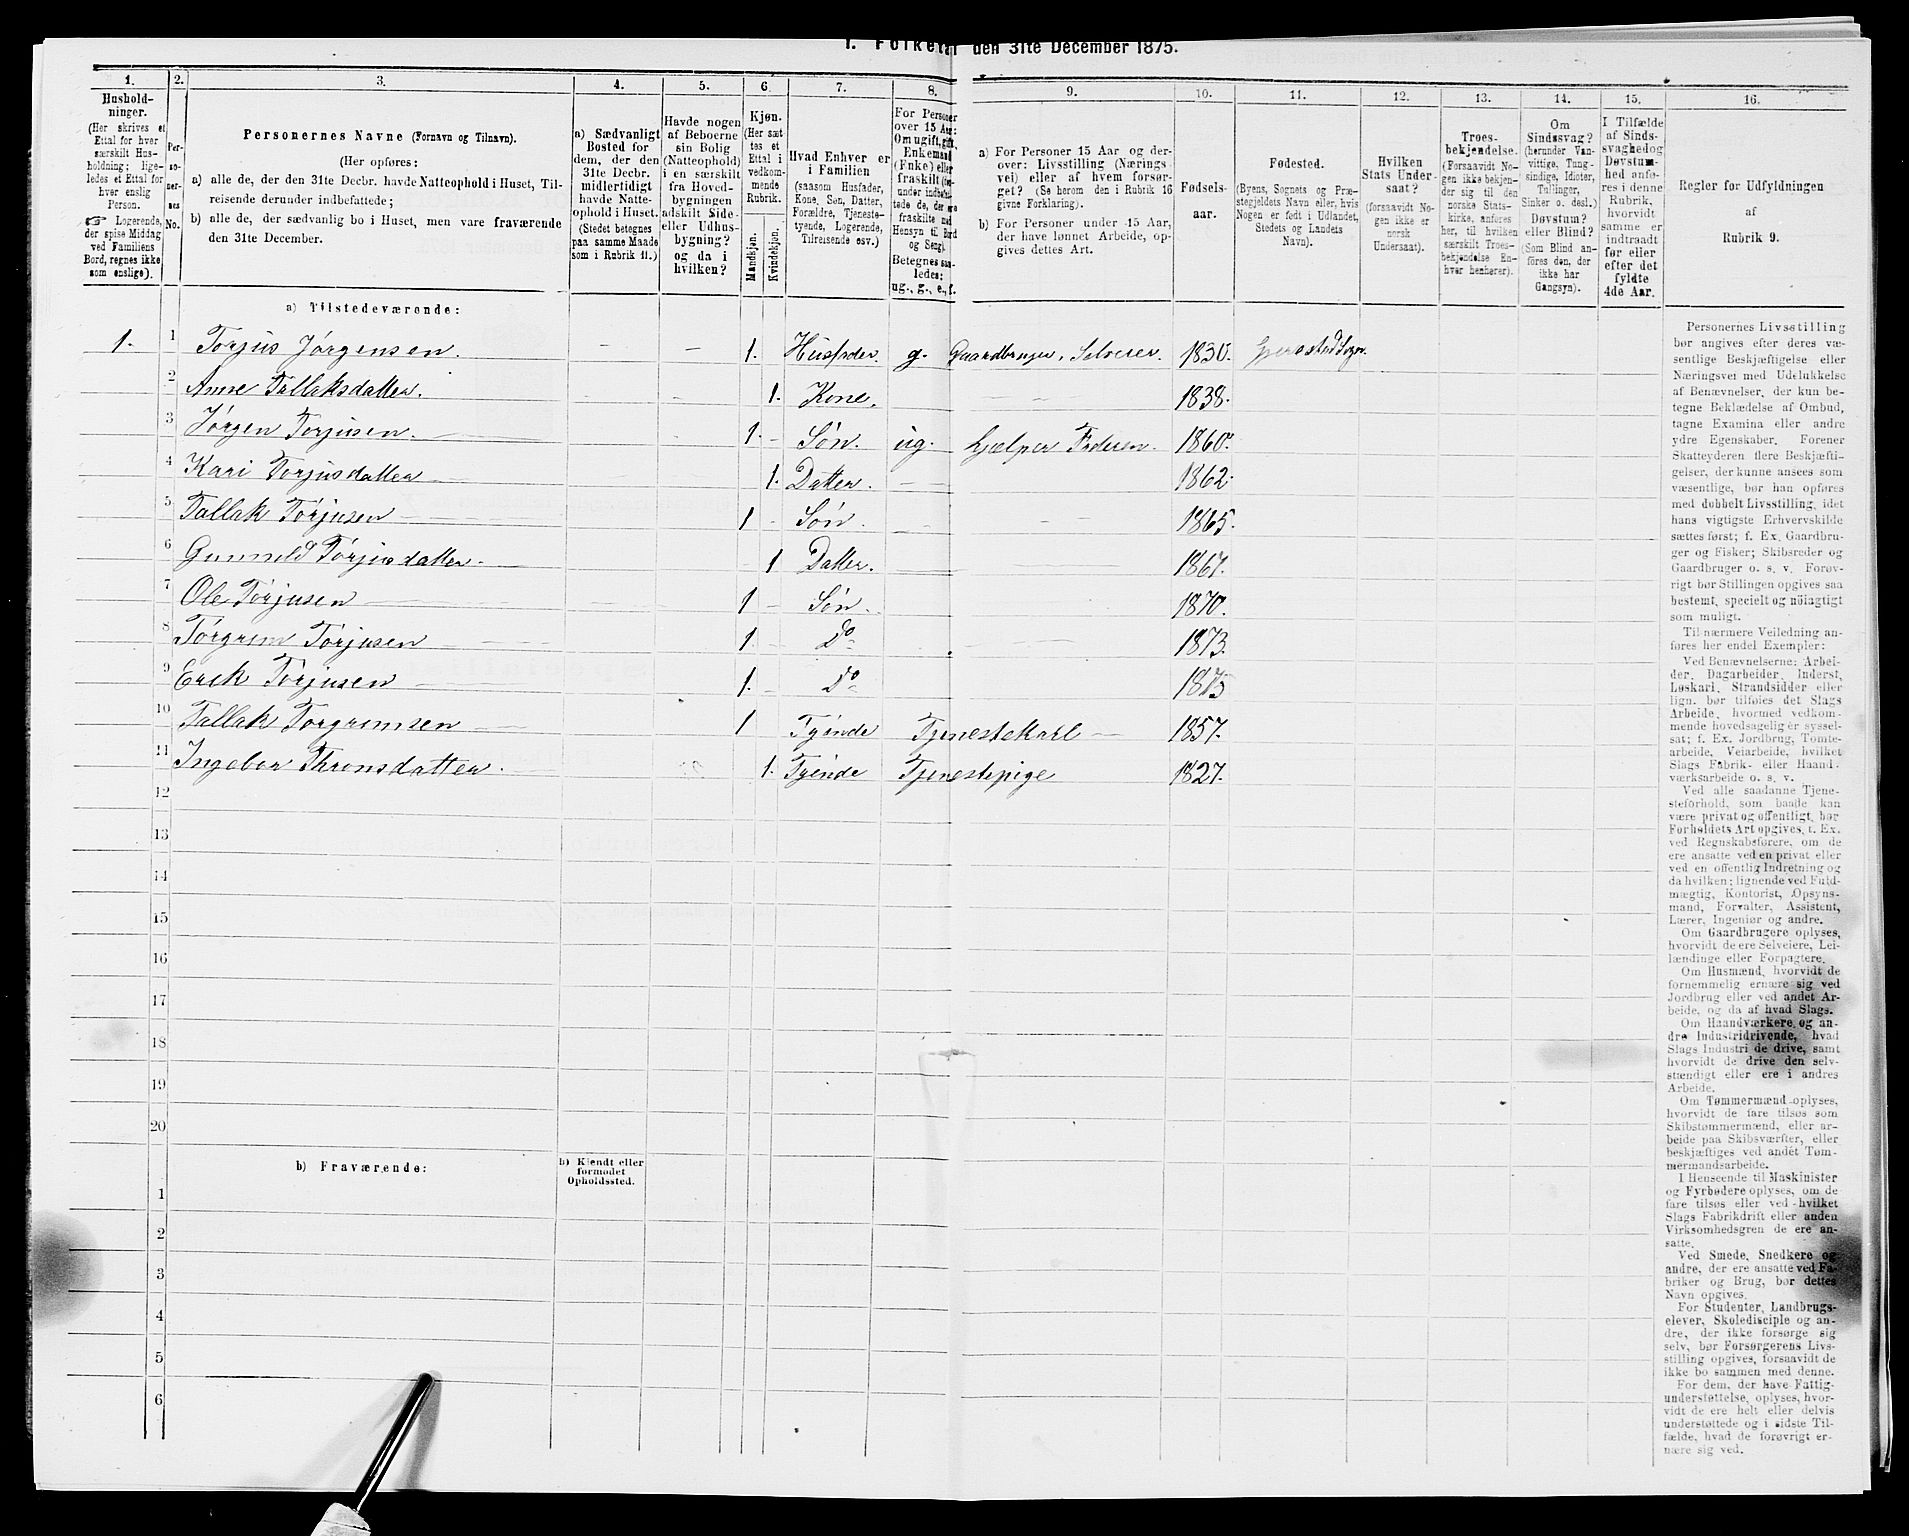 I. Folketal den 31te December 1875.
1. 2. 3. 4. 5. 6. 7. 8. 9. 10. 11. 12. 13. 14. 15. 16.
Hushold-
ninger.
(Her skrives et
Ettal for hver
særskilt Hus-
holdning; lige-
ledes et Ettal for
hver enslig
Person.
☞ Logerende,
der spise Middag
ved Familiens
Bord, regnes ikke
som enslige).
Per-
so-
ner-
nes
No.
Personernes Navne (Fornavn og Tilnavn).
(Her opføres:
a) alle de, der den 31te Decbr. havde Natteophold i Huset, Til-
reisende derunder indbefattede;
b) alle de, der sædvanlig bo i Huset, men vare fraværende
den 31te December.
a) Sædvanligt
Bosted for
dem, der den
31te Decbr.
midlertidigt
havde Natte-
ophold i Huset.
(Stedet betegnes
paa samme Maade
som i Rubrik 11.)
Havde nogen
af Beboerne
sin Bolig
(Natteophold)
i en særskilt
fra Hoved-
bygningen
adskilt Side-
eller Udhus-
bygning?
og da i
hvilken?
Kjøn.
(Her sæt
tes et
Ettal i
vedkom-
mende
Rubrik.
Mandkjøn.
Kvindekjøn.
Hvad Enhver er
i Familien
(saasom Husfader,
Kone, Søn, Datter,
Forældre, Tjeneste-
tyende, Logerende,
Tilreisende osv.)
For Personer
over 15 Aar:
Om ugift, gift,
Enkemand
(Enke) eller
fraskilt
Hensyn til Bord
og Seng).
Betegnes saa-
ledes:
ug., g., e., f.
a) For Personer 15 Aar og der-
over: Livsstilling (Nærings
vei) eller af hvem forsør-
get? (Se herom den i Rubrik 16
givne Forklaring).
b) For Personer under 15 Aar,
der have lønnet Arbeide, op-
gives dettes Art.
Fødsels-
aar.
Fødested.
(Byens, Sognets og Præ-
stegjeldets Navn eller, hvis
Nogen er født i Udlandet,
Stedets og Landets
Navn).
Hvilken
Stats Under-
saat?
(forsaavidt No-
gen ikke er
norsk
Undersaat).
Troes-
bekjendelse.
(Forsaavidt No-
gen ikke bekjen-
der sig til den
norske Stats-
kirke, anføres
her, til hvilken
særskilt Troes-
bekjendelse En-
hver henhører).
Om
Sindssvag?
(herunder Van-
vittige, Tung-
sindige, Idioter,
Tullinger,
Sinker o. desl.)
Døvstum?
eller Blind?
(Som Blind an-
føres den, der
ikke har
Gangsyn).
I Tilfælde
af Sinds-
svaghed og
Døvstum-
hed anfø-
res i denne
Rubrik,
hvorvidt
samme er
indtraadt
før eller
efter det
fyldte
4de Aar.
Regler for Udfyldningen
af
Rubrik 9.
a) Tilstedeværende:
1. 1 Torjus Jørgensen. 1. Husfader. g. Gaardbruger, Selveier. 1830. Gjerestad Sogn.
2 Anne Tallaksdatter. 1. Kone. 1838.
3 Jørgen Torjusen. 1. Søn. ug. hjælper Faderen. 1860.
4 Kari Torjusdatter 1. Datter. 1862.
5 Tallak Torjusen 1 Søn. 1865.
6 Gunnild Torjusdatter. 1 Datter. 1867.
7 Ole Torjusen 1 Søn. 1870.
8 Torgrim Torjusen 1. Do 1873.
9 Erik Torjusen 1. Do 1875
10 Tallak Torgrimsen 1 Tyende Tjenestekarl 1857.
11 Ingebor Thronsdatter. 1. Tyende Tjenestepige 1827.
12
13
14
15
16
17
18
19
20
b) Fraværende:
b) Kjendt eller
formodet
Opholdssted.
1
2
3
4
5
6
Personernes Livsstilling
bør angives efter deres væ-
sentlige Beskjæftigelse eller
Næringsvei med Udelukkelse
af Benævnelser, der kun be-
tegne Beklædelse af Ombud,
tagne Examina eller andre
ydre Egenskaber. Forener
Skatteyderen flere Beskjæfti-
gelser, der kunne ansees som
væsentlige, bør han opføres
med dobbelt Livsstilling, idet
hans vigtigste Erhvervskilde
sættes først; f. Ex. Gaardbru-
ger og Fisker; Skibsreder og
Gaardbruger o. s. v. Forøv-
rigt bør Stillingen opgives saa
bestemt, specielt og nöiagtigt
som muligt.
Til nærmere Veiledning an-
føres her endel Exempler:
Ved Benævnelserne: Arbei-
der, Dagarbeider, Inderst,
Løskari, Strandsidder eller
lign. bør tilføies det Slags
Arbeide, hvormed vedkom-
mende hovedsagelig er syssel-
sat; f. Ex. Jordbrug, Tomte-
arbeide, Veiarbeide, hvilket
Slags Fabrik- eller Haand-
værksarbeide o. s. v.
Ved alle saadanne Tjene-
steforhold, som baade kan
være privat og offentligt, bør
Forholdets Art opgives, t. Ex.
ved Regnskabsførere, om de
ere ansatte ved en privat eller
ved en offentlig Indretning og
da hvilken; lignende ved Fuld-
mægtig, Kontorist, Opsyns-
mand, Forvalter, Assistent,
Lærer, Ingeniør og andre.
Om Gaardbrugere oplyses,
hvorvidt de ere Selveiere, Lei-
lændinge eller Forpagtere.
Om Husmænd, hvorvidt de
fornemmelig ernære sig ved
Jordbrug eller ved andet Ar-
beide, og da af hvad Slags.
Om Haandværkere og an-
dre Industridrivende, hvad
Slags Industri de drive, samt
hvorvidt de drive den selv-
stændigt eller ere i andres
Arbeide.
Om Tømmermænd oplyses,
hvorvidt de fare tilsøs som
Skibstømmermænd, eller ar-
beide paa Skibsværfter, eller
beskjæftiges ved andet Tøm-
mermandsarbeide.
I Henseende til Maskinister
og Fyrbødere oplyses, om de
fare tilsøs eller ved hvilket
Slags Fabrikdrift eller anden
Virksomhedsgren de ere an-
satte.
Ved Smede, Snedkere og
andre, der ere ansatte ved Fa-
briker og Brug, bør dettes
Navn opgives.
For Studenter, Landbrugs-
elever, Skoledisciple og an-
dre, der ikke forsørge sig
selv, bør Forsørgerens Livs-
stilling opgives, forsaavidt de
ikke bo sammen med denne.
For dem, der have Fattig-
understøttelse, oplyses, hvor-
vidt de ere helt eller delvis
understøttede og i sidste Til-
fælde, hvad de forøvrigt er-
nære sig ved.